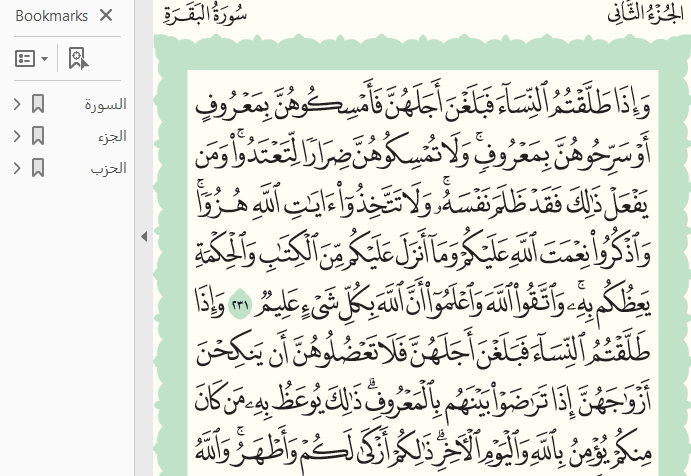 Bookmarks
السورة
الجزء
الحزب
الجُزْءُ الثَّانِي
سُورَةُ البَقَرَةِ
وَإِذَا طَلَّقْتُمُ ٱلنِّسَآءَ فَبَلَغْنَ أَجَلَهُنَّ فَأَمْسِكُوهُنَّ بِمَعْرُوفٍ
أَوْ سَرِّحُوهُنَّ بِمَعْرُوفٖۚ وَلَا تُمْسِكُوهُنَّ ضِرَارٗا لِّتَعْتَدُواْۚ وَمَن
يَفْعَلْ ذَٰلِكَ فَقَدْ ظَلَمَ نَفْسَهُۥۚ وَلَا تَتَّخِذُوٓاْ ءَايَٰتِ ٱللَّهِ هُزُوٗاۚ
وَٱذْكُرُواْ نِعْمَتَ ٱللَّهِ عَلَيْكُمْ وَمَآ أَنزَلَ عَلَيْكُم مِّنَ ٱلْكِتَٰبِ وَٱلْحِكْمَةِ
يَعِظُكُم بِهِۦۚ وَٱتَّقُواْ ٱللَّهَ وَٱعْلَمُوٓاْ أَنَّ ٱللَّهَ بِكُلِّ شَيْءٍ عَلِيمٞ ٢٣١ وَإِذَا
طَلَّقْتُمُ ٱلنِّسَآءَ فَبَلَغْنَ أَجَلَهُنَّ فَلَا تَعْضُلُوهُنَّ أَن يَنكِحْنَ
أَزْوَٰجَهُنَّ إِذَا تَرَٰضَوْاْ بَيْنَهُم بِٱلْمَعْرُوفِۗ ذَٰلِكَ يُوعَظُ بِهِۦ مَن كَانَ
مِنكُمْ يُؤْمِنُ بِٱللَّهِ وَٱلْيَوْمِ ٱلْأٓخِرِۗ ذَٰلِكُمْ أَزْكَىٰ لَكُمْ وَأَطْهَرُۚ وَٱللَّهُ